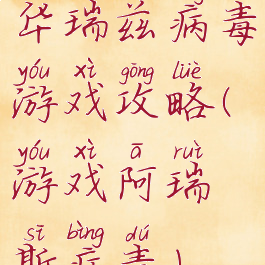 华瑞兹病毒
yóu xì gōng lüè
游戏攻略(
yóu xì ā ruì
游戏阿瑞
sī bìng dú
斯病毒)